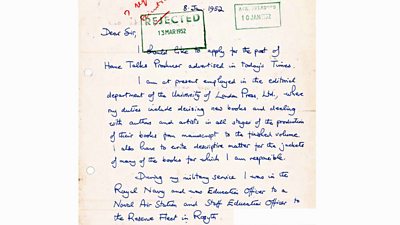 8 Jan 1952
REJECTED
13 MAR 1952
10 JAN 1952
Dear Sir,
I should like to apply for the post of
Home Talks Producer advertised in Today's Times.
I am at present employed in the editorial
department of the University of London Press Ltd., where
my duties include devising new books and dealing
with authors and artists in all stages of the production
of their books from manuscript to the finished volume.
I also have to write descriptive matter for the jackets
of many of the books for which I am responsible.
During my military service I was in the
Royal Navy and was Education Officer to a
Naval Air Station and Staff Education Officer to
the Reserve Fleet in Rosyth.